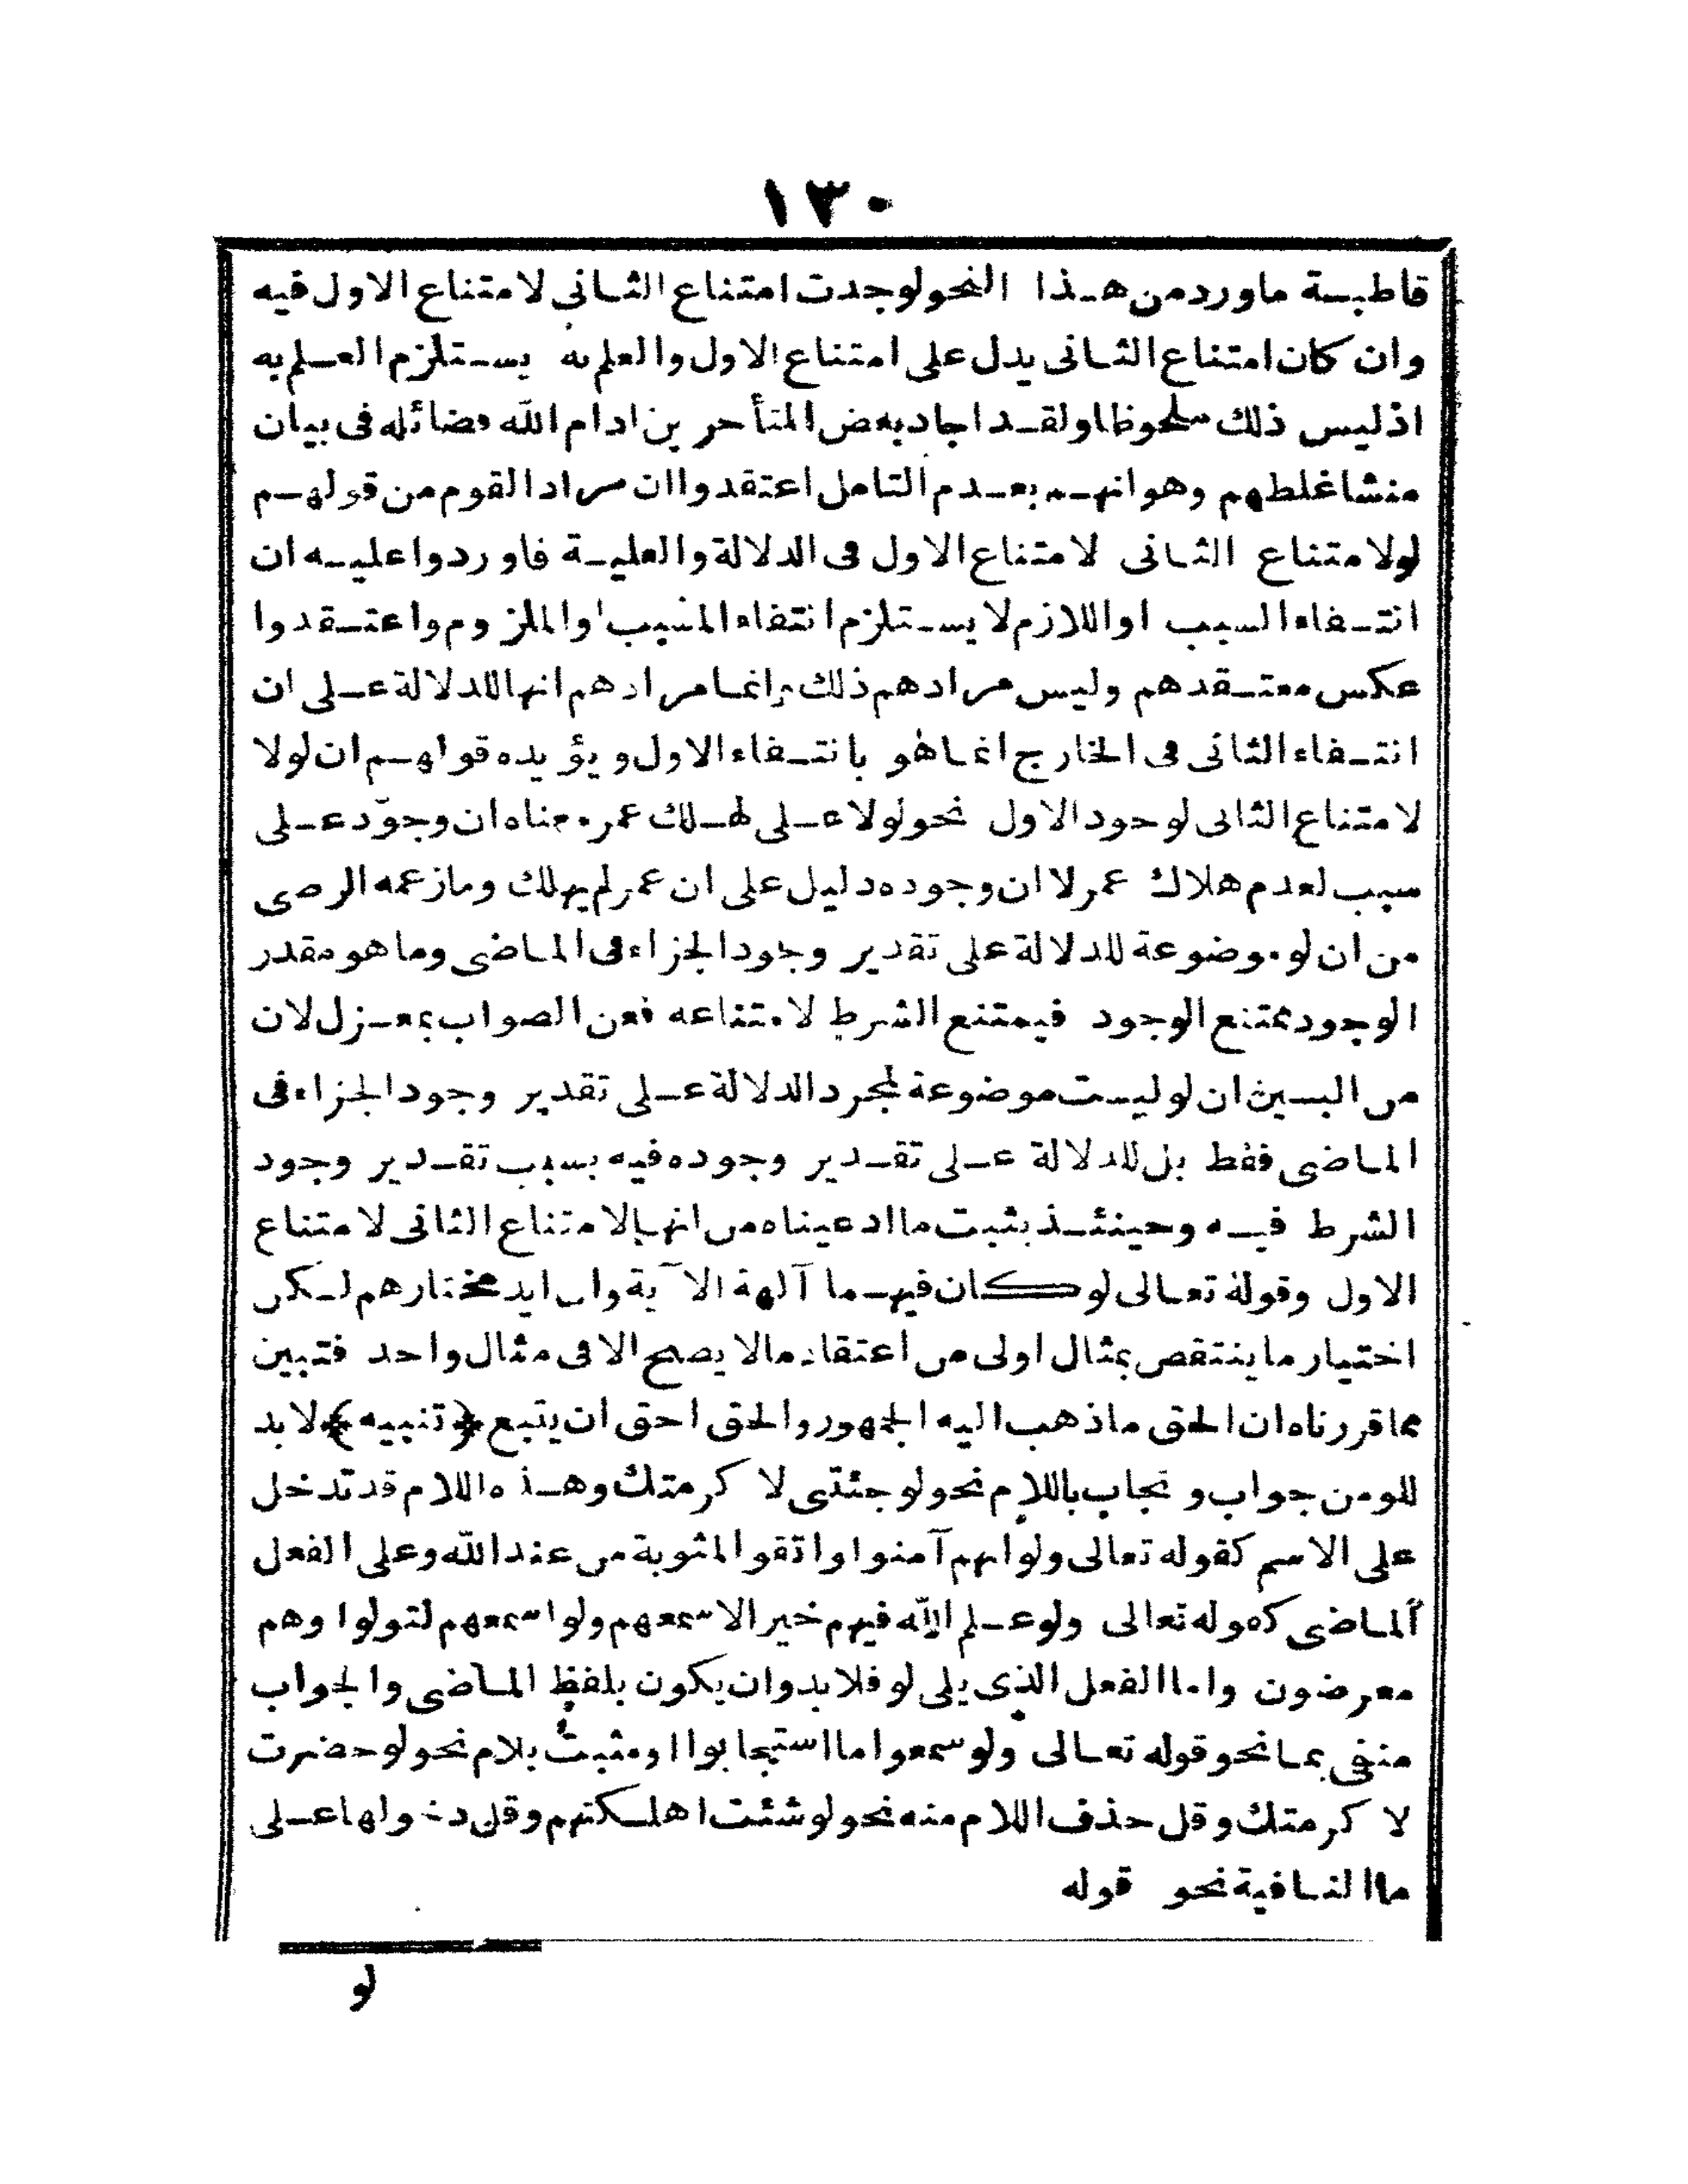 ١٣٠
قاطبة ماورد من هذا النحو لوجدت امتناع الثانى لامتناع الاول فيه
وان كان امتناع الثانى يدل على امتناع الاول والعلم به يستلزم العلم به
اذليس ذلك ملحوظا ولقد اجاد بعض المتأخرين ادام الله فضائله فى بيان
منشا غلطهم وهو انهم بعدم التامل اعتقدوا ان مراد القوم من قولهم
لو لامتناع الثانى لامتناع الاول فى الدلالة والعلية فاوردوا عليه ان
انتفاء السبب او اللازم لا يستلزم انتفاء المسبب او الملزوم واعتقدوا
عكس معتقدهم وليس مرادهم ذلك وانما مرادهم انها للدلالة على ان
انتفاء الثانى فى الخارج انما هو بانتفاء الاول ويؤيده قولهم ان لولا
لامتناع الثانى لوجود الاول نحو لولا على لهلك عمر معناه ان وجود على
سبب لعدم هلاك عمر لا ان وجوده دليل على ان عمر لم يهلك وما زعمه الرضى
من ان لو موضوعة للدلالة على تقدير وجود الجزاء فى الماضى وما هو مقدر
الوجود ممتنع الوجود فيمتنع الشرط لامتناعه فعن الصواب بمعزل لان
من البين ان لو ليست موضوعة لمجرد الدلالة على تقدير وجود الجزاء فى
الماضى فقط بل للدلالة على تقدير وجوده فيه بسبب تقدير وجود
الشرط فيه وحينئذ يثبت ما ادعيناه من انها لامتناع الثانى لامتناع
الاول وقوله تعالى لو كان فيهما آلهة الآية وان ايد مختارهم لكن
اختيار ما ينتقص بمثال اولى من اعتقاد مالا يصح الا فى مثال واحد فتبين
مما قررناه ان الحق ما ذهب اليه الجمهور والحق احق ان يتبع ﴿تنبيه﴾ لابد
للو من جواب و تجاب باللام نحو لو جئتى لاكرمتك وهذه اللام قد تدخل
على الاسم كقوله تعالى ولو انهم آمنوا واتقوا لمثوبة من عند الله وعلى الفعل
الماضى كقوله تعالى ولو علم الله فيهم خيرا لاسمعهم ولو اسمعهم لتولوا وهم
معرضون واما الفعل الذى يلى لو فلابد وان يكون بلفظ الماضى والجواب
منفى بما نحو قوله تعالى ولو سمعوا ما استجابوا او مثبت بلام نحو لو حضرت
لاكرمتك وقل حذف اللام منه نحو لو شئت اهلكتهم وقل دخولها على
ما النافية نحو قوله
لو